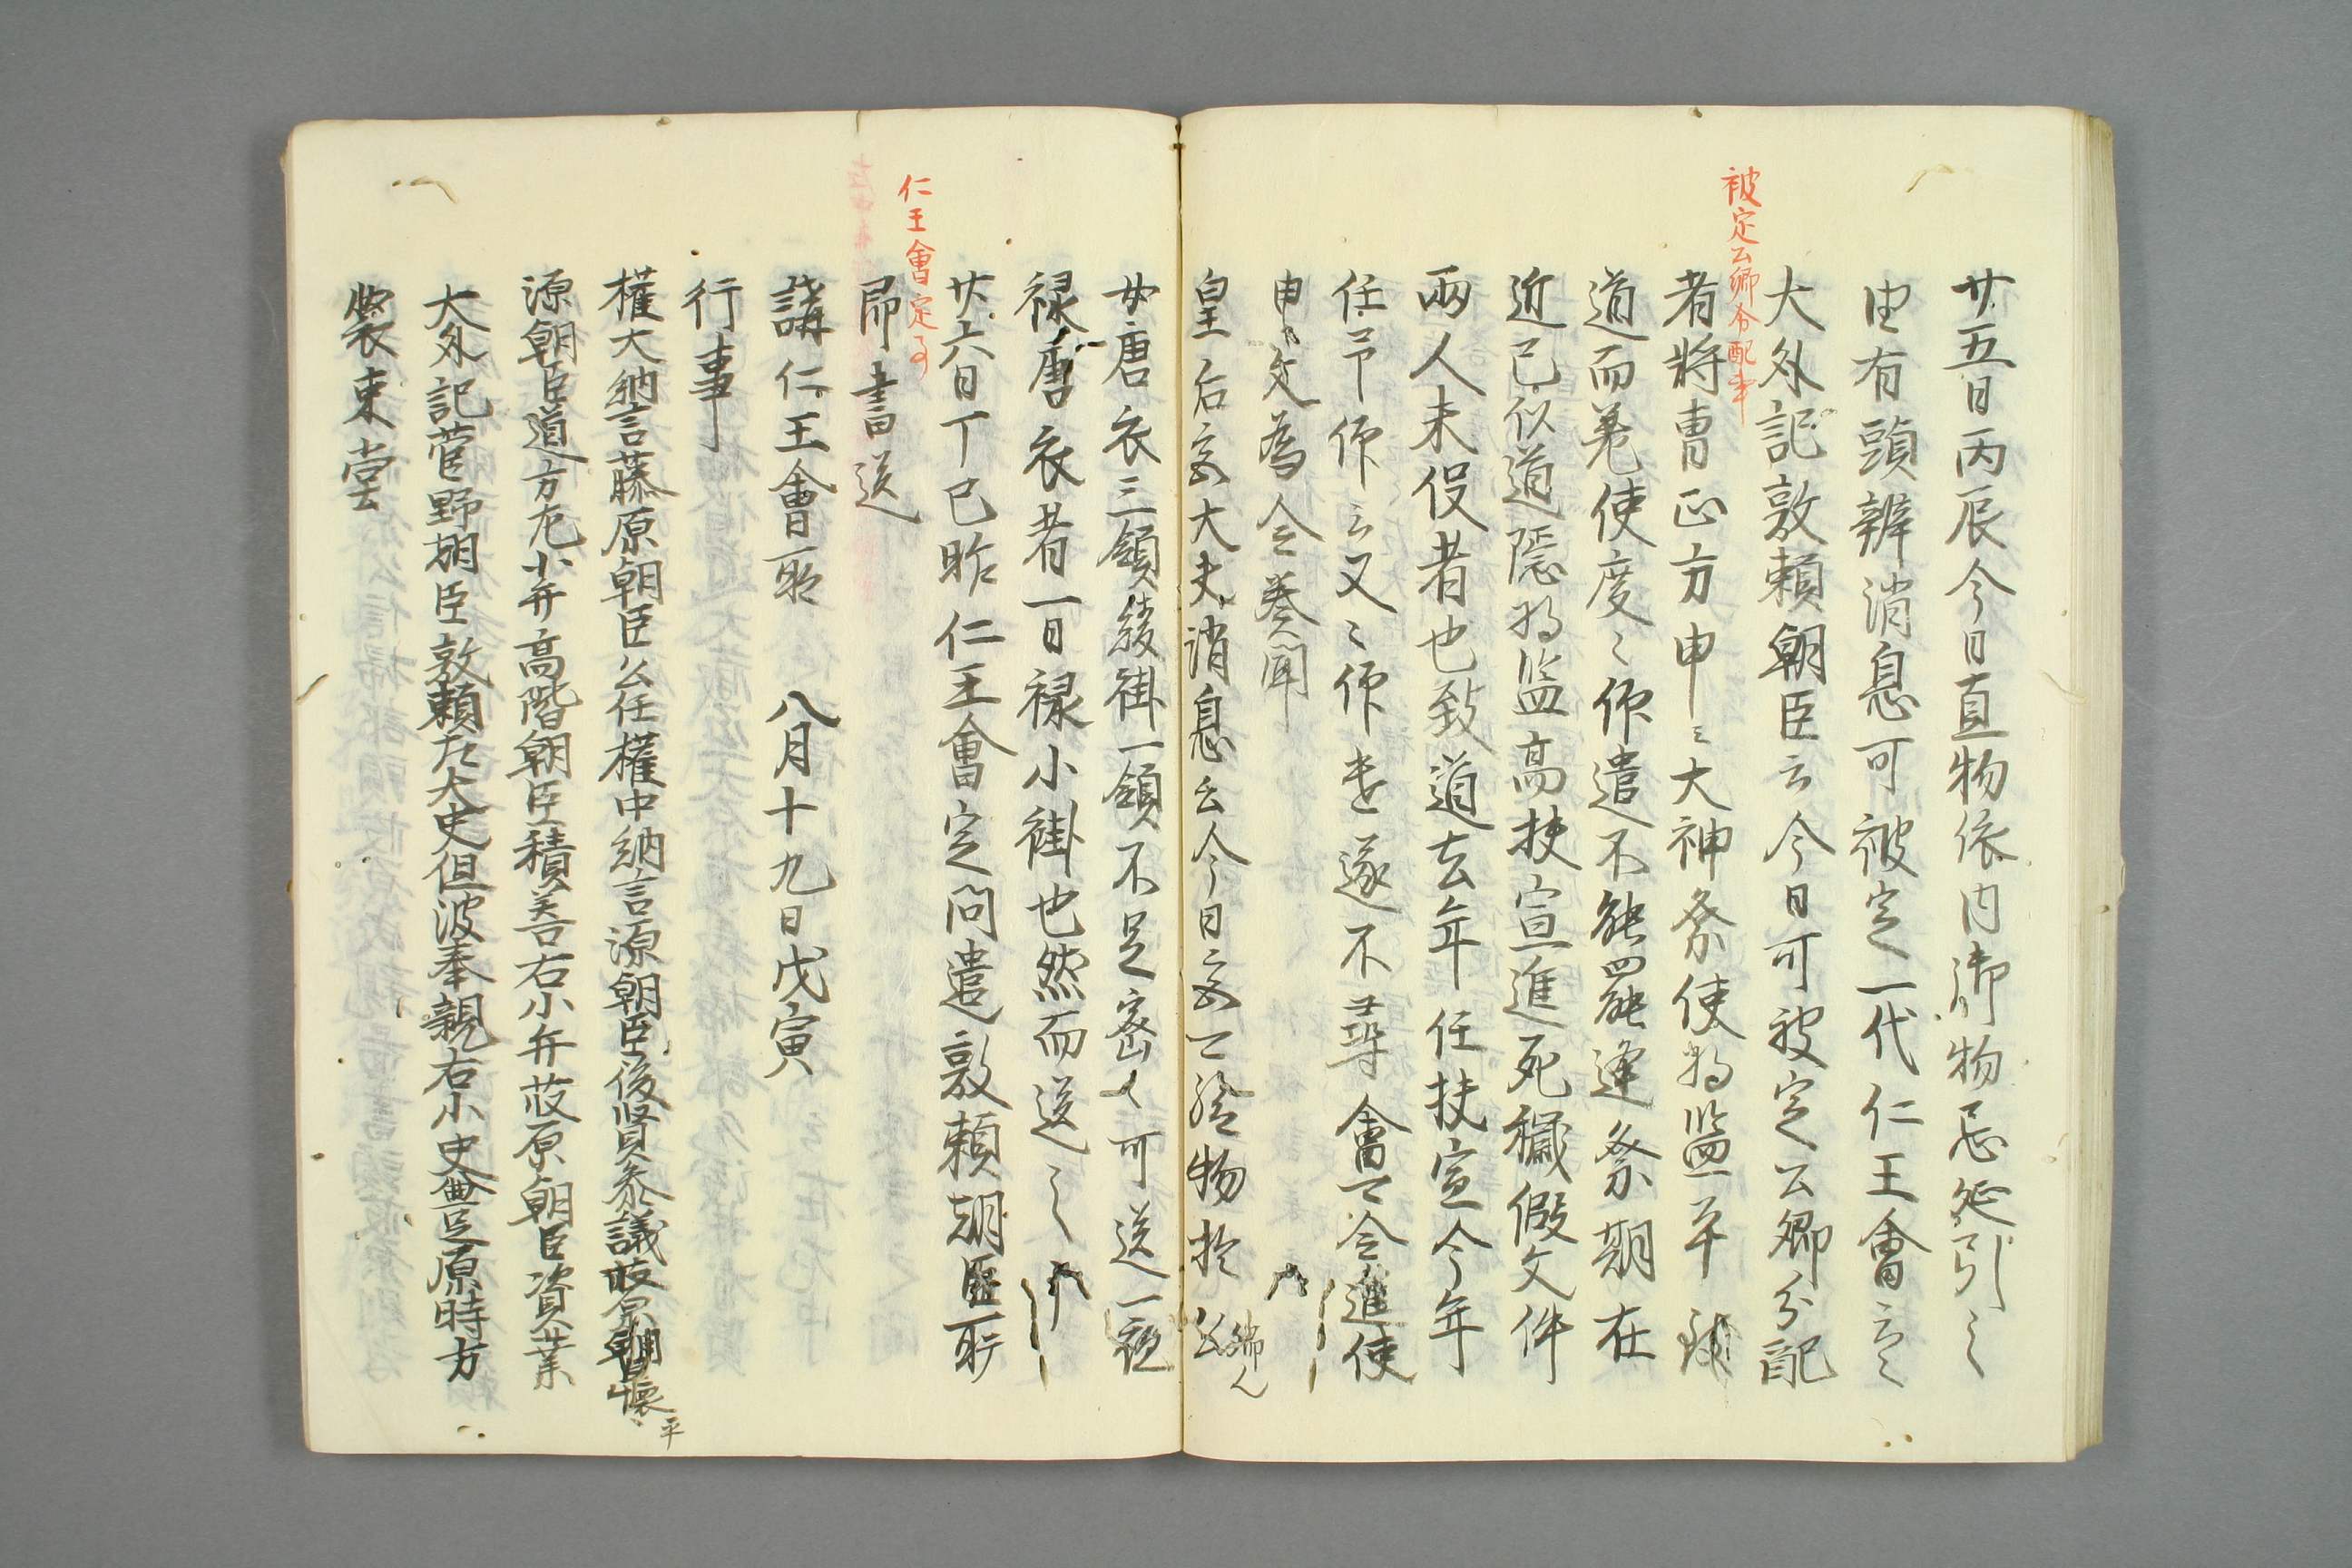 被定公卿分配事
廿五日丙辰今日直物依内御物忌延引之
由有頭辨消息可被定一代仁王會云々
大外記敦頼朝臣云今日可被定公卿分配
者將曹正方申云大神祭使将監平
道而差使度々仰遣不能罷逢祭期在
近已似遁隠将監高扶宣進死穢假文件
兩人未役者也致道去年任扶宣今年
任可仰云又々仰遣遂不尋會可令進使
申文為令奏聞
皇后宮大夫消息云今日宮可給物於
女唐衣三領綾褂一領不足密々可送一襲
禄唐衣者一日禄小褂也然而送之
仁王會定事
廿六日丁巳昨仁王會定問遣敦頼朝臣所
即書送
講仁王會所　八月十九日戊寅
行事
權大納言藤原朝臣公任權中納言源朝臣俊賢参議藤原朝臣懐平
源朝臣道方左小弁高階朝臣積善右小弁藤原朝臣資業
大外記菅野朝臣敦頼左大史但波奉親右小史豊原時方
裝束堂